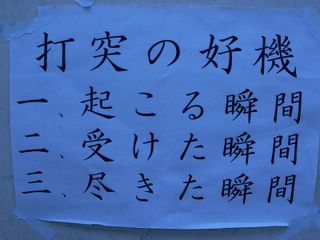 打突の好機
一、起こる瞬間
二、受けた瞬間
三、尽きた瞬間